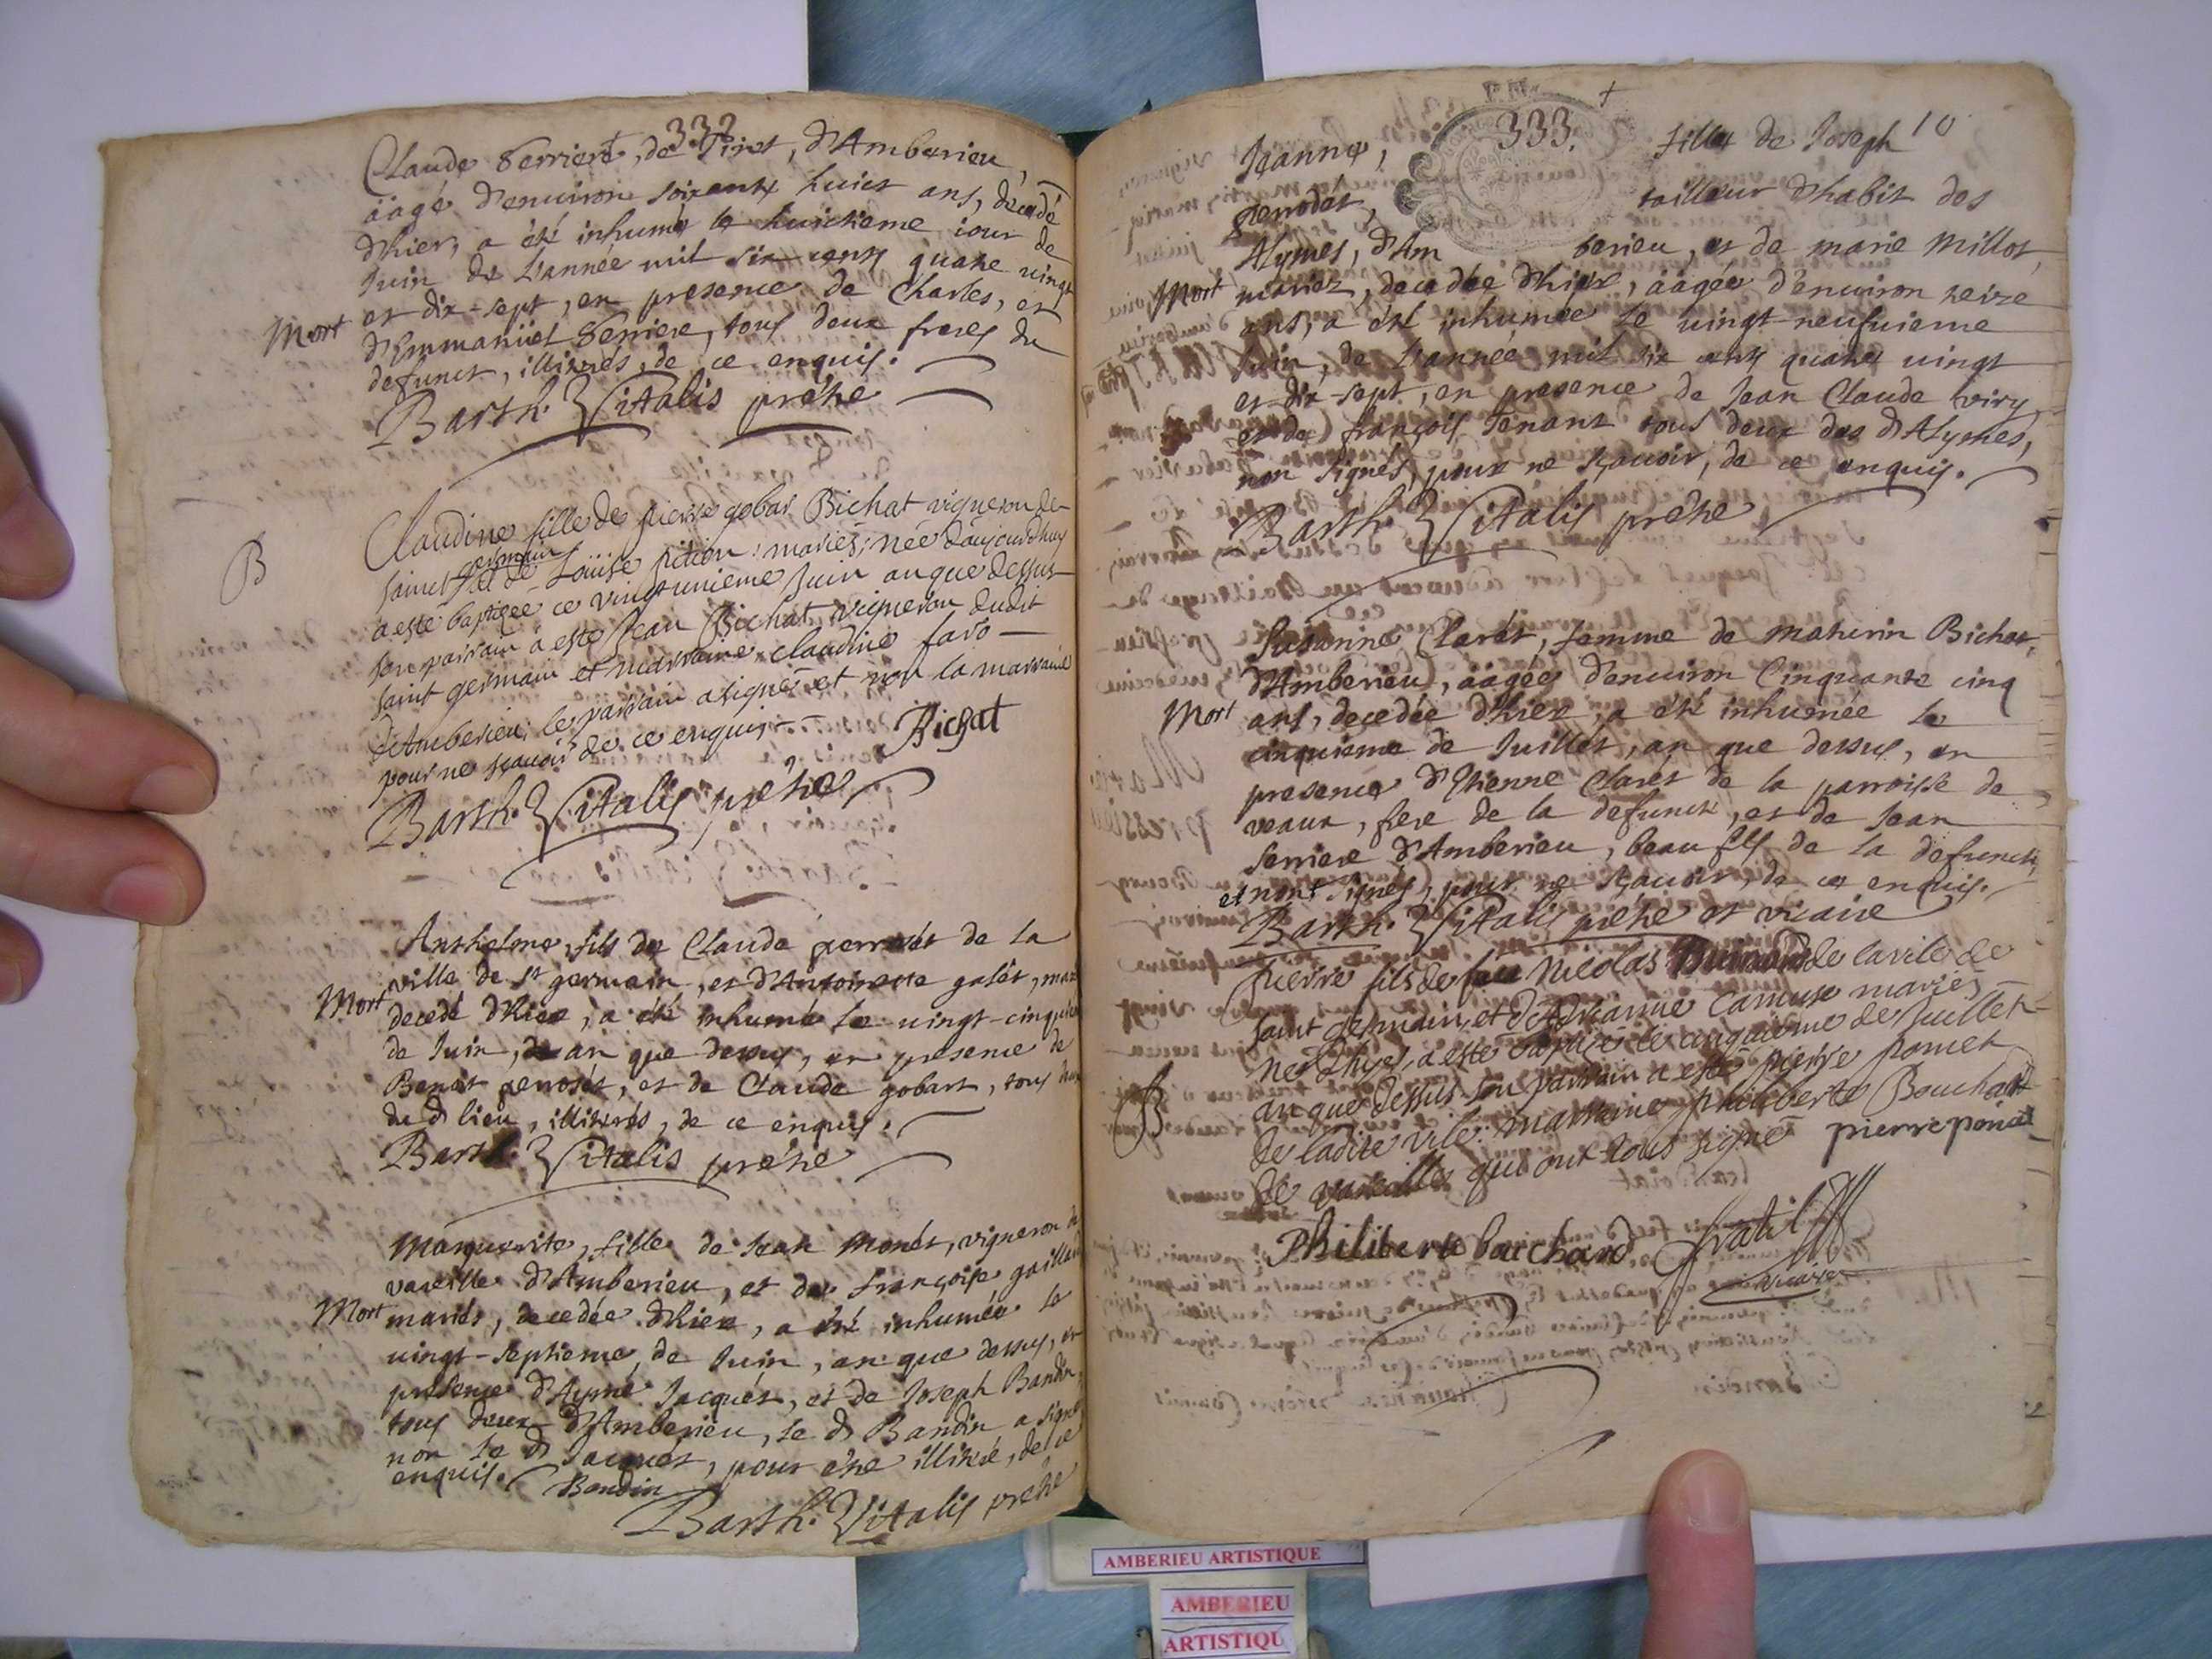 332
Claude Serriere, de Tiret, d'Amberieu,
äagé d'enuiron soixante huict ans, decedé
d'hier, a été inhumé le huictieme iour de
Juin de L'année mil six cents quatre uingt
Mort et dix-sept, en presence de Charles, et
d'Emmanüel Serriere, tous deux freres du
defunct, illitérés, de ce enquis.
Barth. Vitalis prétre
B
Claudine fille de pierre gobar Bichat vigneron de
saint germain et de Loüise pition mariés; née d'aujourdhuy
a esté baptizée ce vingtunieme Juin an que dessus
son parrain a este Jean Bichat vigneron dudit
saint germain et marraine claudine favo
d'Amberieu; le parrain a signé et non la marraine
pour ne sçauoir de ce enquis
Bichat
Barth. Vitalis prétre
Anthelme, fils de Claude perrodét de la
ville de st germain, et d'Antoinette galét, mar
Mort decedé d'hier, a été inhumé le uingt-cinquie
de Juin, an que dessus, en presence de
Benoit perrodét, et de Claude gobart, tous deux
du d lieu, illiterés, de ce enquis.
Barth. Vitalis prétre
Marguerite, fille de Jean Monét, vigneron de
vareille d'Amberieu, et de françoise gaillard
Mort mariés, decedée d'hier, a été inhumée le
uingt-septieme de Juin, an que dessus, en
presence d'Aymé Jacquét, et de Joseph Bandin,
tous deux d'Amberieu, le d Bandin a signé
non le d Jacquét, pour étre illiteré, de ce
enquis. Bandin
Barth. Vitalis prétre
333.
10
Jeanne, fille de Joseph
perrodét, tailleur d'habit des
Alymes, d'Am berieu, et de marie Millot,
Mort mariez, decedée d'hier, äagée d'enuiron treize
ans, a été inhumée le uingt-neufuieme
Juin, de L'année mil six cents quatre uingt
et dix-sept, en presence de Jean Claude viry,
et de françois Tenant tous deux des d Alymes,
non signés, pour ne sçauoir, de ce enquis.
Barth. Vitalis prétre
Susanne Clarét, femme de Maturin Bichat,
d'Amberieu, äagée d'enuiron Cinquante cinq
Mort ans, decedée d'hier, a été inhumée le
cinquieme de Juillet, an que dessus, en
presence d'Etienne Clarét de la parroisse de
veaux, frere de la defuncte, et de Jean
Serriere d'Amberieu, beau fils de la defuncte,
et non signés, pour ne sçauoir, de ce enquis.
Barth. Vitalis prétre et vicaire
pierre fils de feu Nicolas de la vile de
saint germain, et d'Adrianne Camuse mariés
né d'hyer, a esté baptizé le cinquieme de Juillet
B an que dessus son parrain a esté pierre ponet
de ladite vile: marraine philiberte Bouchard
de vareilles qui ont tous signé pierre ponet
Philiberte bouchard
vicaire
AMBERIEU ARTISTIQUE
AMBERIEU
ARTISTIQU